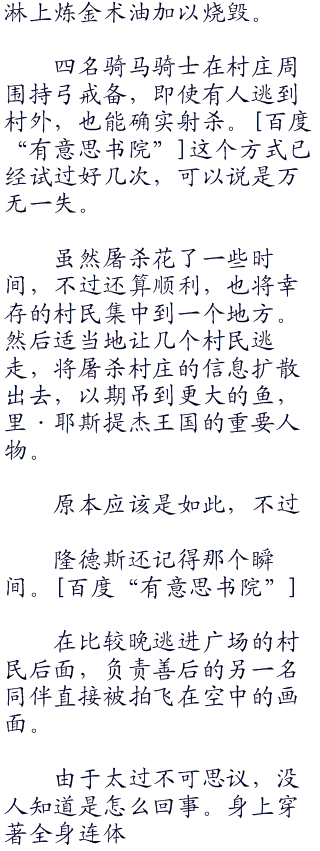 淋上炼金术油加以烧毁。
四名骑马骑士在村庄周
围持弓戒备，即使有人逃到
村外，也能确实射杀。[百度
“有意思书院”]这个方式已
经试过好几次，可以说是万
无一失。
虽然屠杀花了一些时
间，不过还算顺利，也将幸
存的村民集中到一个地方。
然后适当地让几个村民逃
走，将屠杀村庄的信息扩散
出去，以期吊到更大的鱼，
里·耶斯提杰王国的重要人
物。
原本应该是如此，不过
隆德斯还记得那个瞬
间。[百度“有意思书院”]
在比较晚逃进广场的村
民后面，负责善后的另一名
同伴直接被拍飞在空中的画
面。
由于太过不可思议，没
人知道是怎么回事。身上穿
著全身连体